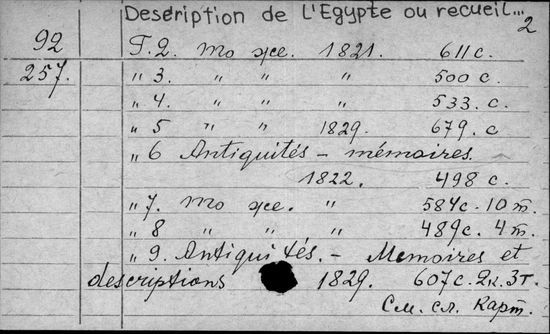 Description de L'Egypte ou recueil... 2
92 Т.2. То же. 1821. 611 с.
257. " 3. " " " 500 с.
" 4. " " " 533. с.
" 5 " " 1829. 679. с
" 6 Antiquités – mémoires.
1822. 498 с.
" 7. То же. " 584с. 10 т.
" 8 " " " 489с. 4 т.
" 9. Antiquités. – Memoires et
descriptions 1829. 607с. 2к. 3т.
См. сл. карт.